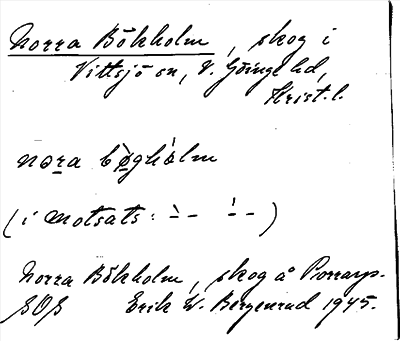 Norra Bökholm, skog i
Vittsjö sn, V. Göinge hd,
Krist. l.
nora bø̀ghólm
(i motsats: ̀- - ́- -)
Norra Bökholm, skog å Porrarp.
SOS Erik W. Bergenrud 1945.